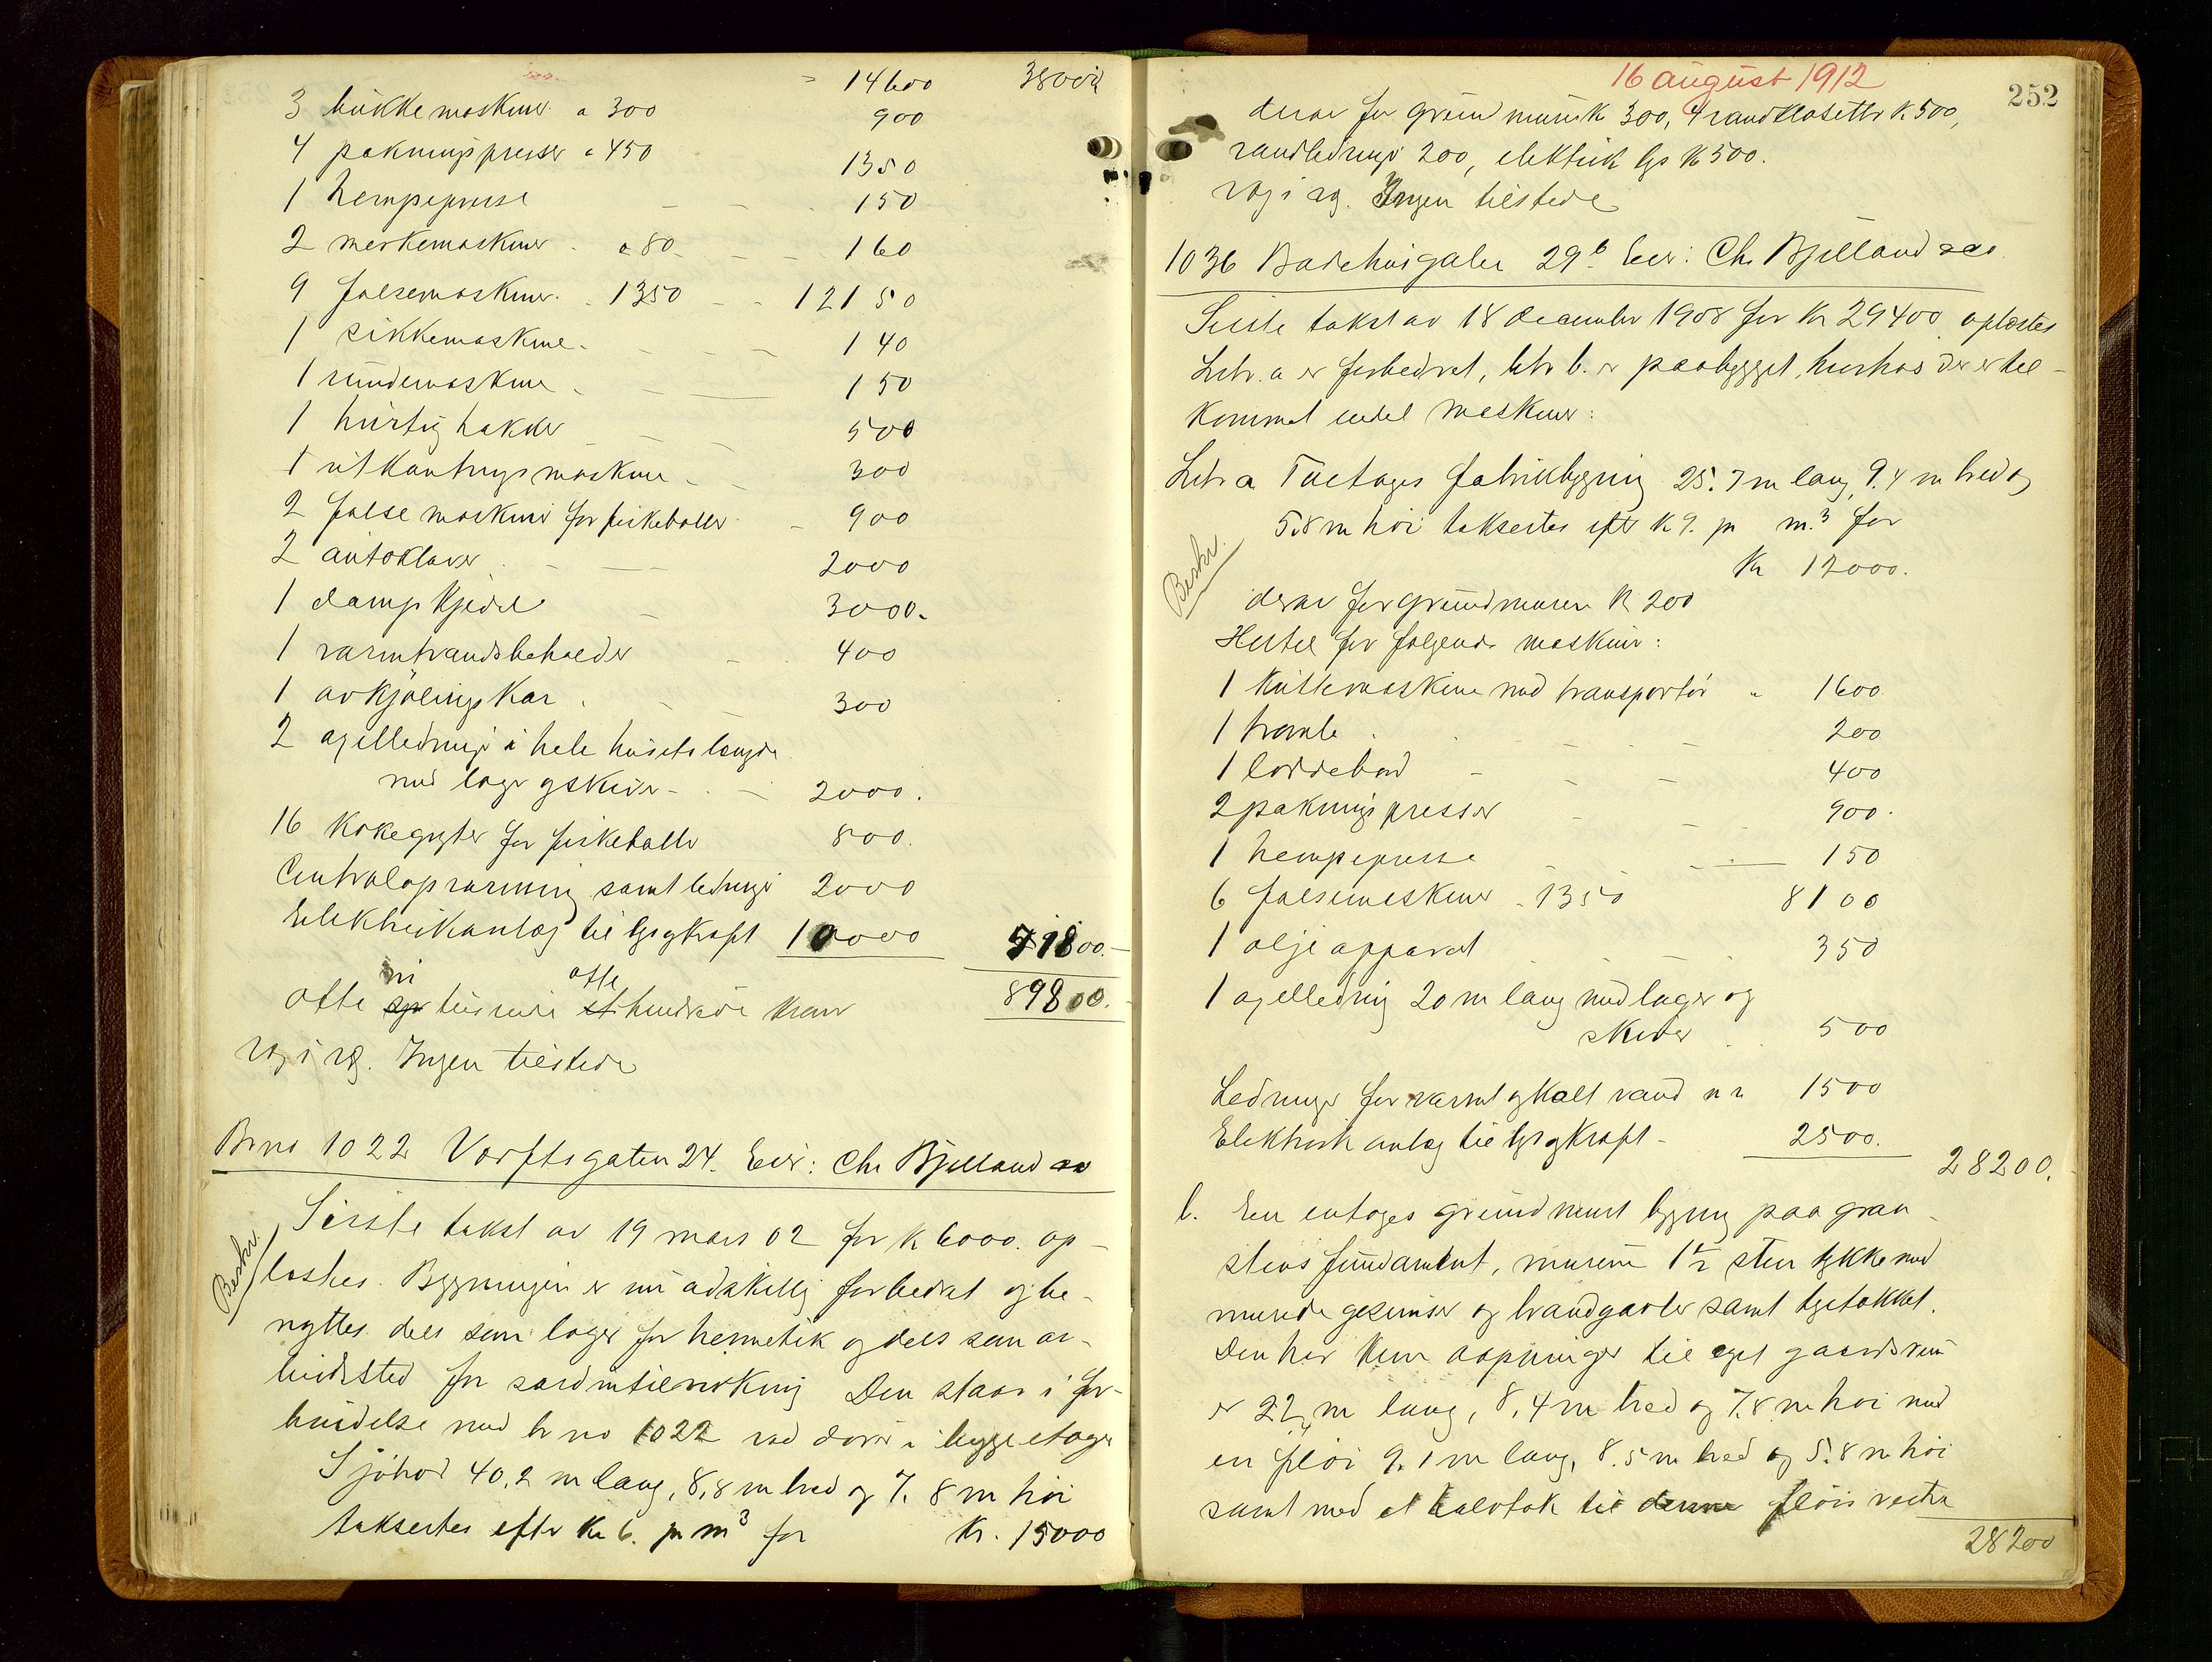 14600 38000
3 bukkemaskiner a 300 900
4 pakningspresser a 450 1350
1 hempepresse 150
2 merkemaskiner a 80 160
9 falsemaskiner 1350 12150
1 sikkemaskine 140
1 rundemaskine 150
1 hurtighakker 500
1 utkantningsmaskine 300
2 falsemaskiner for fiskeboller 900
2 autoklaver 2000
1 dampkjedel 3000.
1 varmtvandsbeholder 400
1 avkjølingskar 300
2 axelledninger i hele husets længde
med lager og skiver 2000.
16 kokegryter for fiskeboller 800.
Centralopvarming samt ledninger 2000
Elektriskanlæg til lys og kraft 10000 51800.
ni otte
Otte tusinde hundrede kroner 89800.
Ingen tilstede
Br no 1022 Verftsgaten 24. Eier: Chr Bjelland & co
Beskr.
Sidste takst av 19 mars 02 for kr 6000. op-
læstes. Bygningen er nu adskillig forbedret og be-
nyttes dels som lager for hermetik og dels som ar-
beidsted for sardintilvirkning Den staar i for-
bindelse med br no 1022 ved dører i begge etager
Sjøhus 40,2 m lang, 8,8 m bred og 7.8 m høi
taksertes efter kr 6. pr m³ for kr. 15000
16 august 1912
252
derav for grundmur k 300, 4 vandklosetter k 500,
vandledninger 200, elektrisk lys k 500.
Ingen tilstede
1036 Badehusgaten 29b Eier: Chr. Bjelland & co
Sidste takst av 18 december 1908 for kr 29400 oplæstes
Litr. a er forbedret, litr b. er paabygget, hvorhos der er til-
kommet endel maskiner:
Beskr.
Litr a Toetages fabrikbygning 25.7 m lang, 9.4 m bred og
5.8 m høi taksertes efter k 9. pr m.³ for
Kr 12000.
derav for grundmuren k 200
Hertil for følgende maskiner:
1 kuttemaskine med transportør 1600
1 tromle 200
1 loddebord 400
2 pakningspresser 900.
1 hempepresse 150
6 falsemaskiner 1350 8100
1 oljeapparat 350
1 axelledning 20 m lang med lager og
skiver 500
Ledninger for varmt og kalt vand 1500
Elektrisk anlæg til lys og kraft 2500. 28200.
b. En entages grundmurt bygning paa graa-
stens fundament, murene 1½ sten tykke med
murede gesimser og brandgavler samt tegltækket.
Den har kun aapninger til eget gaardsrum
er 22,4 m lang, 8,4 m bred og 7.8 m høi med
en fløi 9.1 m lang, 8.5 m bred og 5.8 m høi
samt med et halvtak til denne fløis vestre
28200